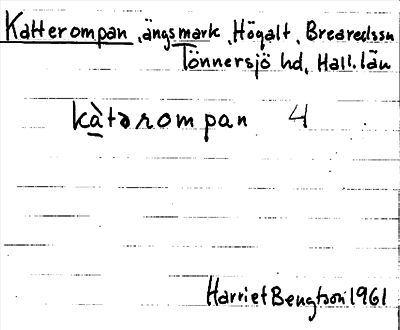 Katterompan, ängsmark, Högalt, Brearedssn
Tönnersjö hd, Hall. län
kàtərompan 4
Harriet Bengtson 1961